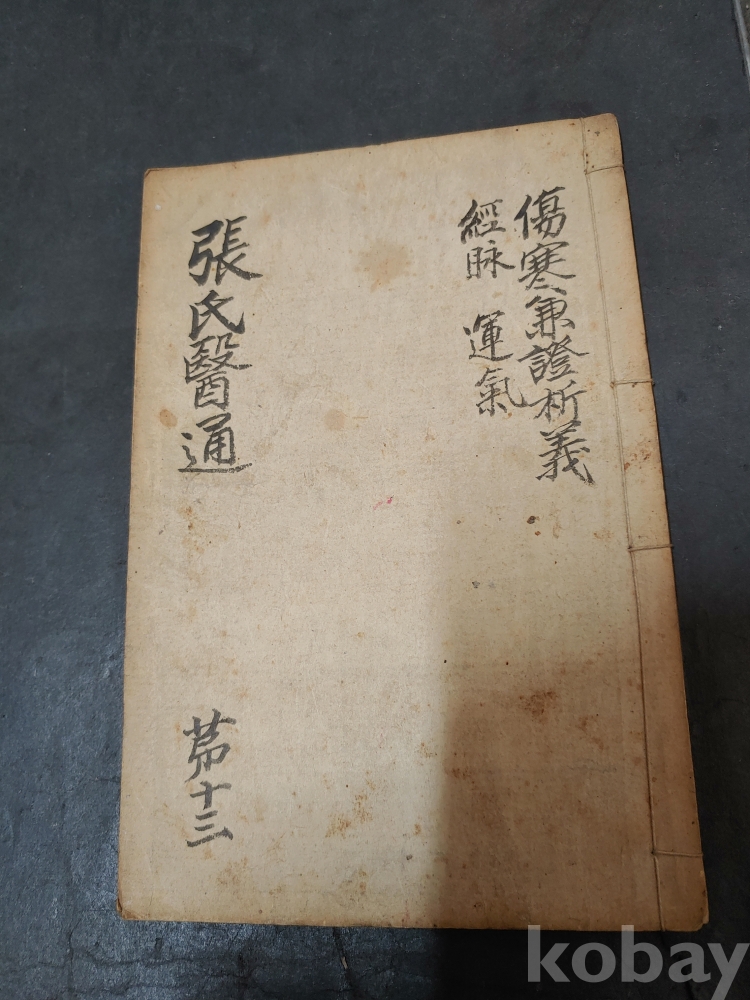 傷寒兼證析義
經脉 運氣
張氏醫通
第十三
kobay